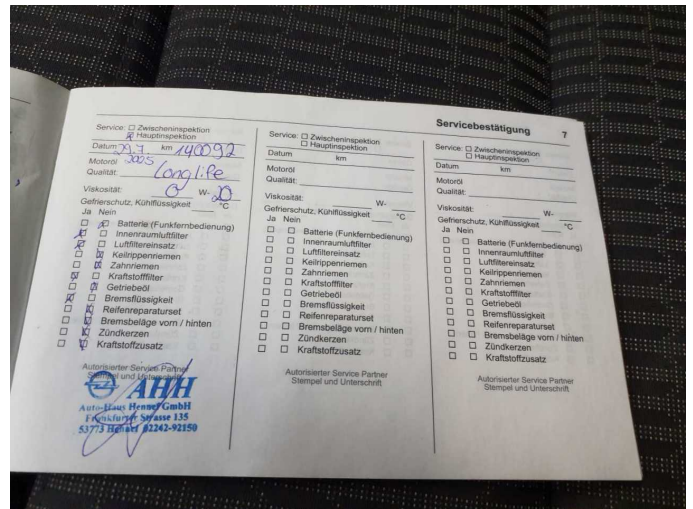 Servicebestätigung 7
Service: ☐ Zwischeninspektion
☒ Hauptinspektion
Datum 29.7 km 140092
2025
Motoröl
Qualität: Longlife
Viskosität: 0 W- 20
Gefrierschutz, Kühlflüssigkeit °C
Ja Nein
☐ ☒ Batterie (Funkfernbedienung)
☒ ☐ Innenraumluftfilter
☒ ☐ Luftfiltereinsatz
☐ ☒ Keilrippenriemen
☐ ☒ Zahnriemen
☒ ☐ Kraftstofffilter
☐ ☒ Getriebeöl
☒ ☐ Bremsflüssigkeit
☐ ☒ Reifenreparaturset
☐ ☒ Bremsbeläge vorn / hinten
☐ ☒ Zündkerzen
☐ ☒ Kraftstoffzusatz
Autorisierter Service Partner
Stempel und Unterschrift
AHH
Auto-Haus Hennef GmbH
Frankfurter Strasse 135
53773 Hennef 02242-92150
Service: ☐ Zwischeninspektion
☐ Hauptinspektion
Datum km
Motoröl
Qualität:
Viskosität: W-
Gefrierschutz, Kühlflüssigkeit °C
Ja Nein
☐ ☐ Batterie (Funkfernbedienung)
☐ ☐ Innenraumluftfilter
☐ ☐ Luftfiltereinsatz
☐ ☐ Keilrippenriemen
☐ ☐ Zahnriemen
☐ ☐ Kraftstofffilter
☐ ☐ Getriebeöl
☐ ☐ Bremsflüssigkeit
☐ ☐ Reifenreparaturset
☐ ☐ Bremsbeläge vorn / hinten
☐ ☐ Zündkerzen
☐ ☐ Kraftstoffzusatz
Autorisierter Service Partner
Stempel und Unterschrift
Service: ☐ Zwischeninspektion
☐ Hauptinspektion
Datum km
Motoröl
Qualität:
Viskosität: W-
Gefrierschutz, Kühlflüssigkeit °C
Ja Nein
☐ ☐ Batterie (Funkfernbedienung)
☐ ☐ Innenraumluftfilter
☐ ☐ Luftfiltereinsatz
☐ ☐ Keilrippenriemen
☐ ☐ Zahnriemen
☐ ☐ Kraftstofffilter
☐ ☐ Getriebeöl
☐ ☐ Bremsflüssigkeit
☐ ☐ Reifenreparaturset
☐ ☐ Bremsbeläge vorn / hinten
☐ ☐ Zündkerzen
☐ ☐ Kraftstoffzusatz
Autorisierter Service Partner
Stempel und Unterschrift